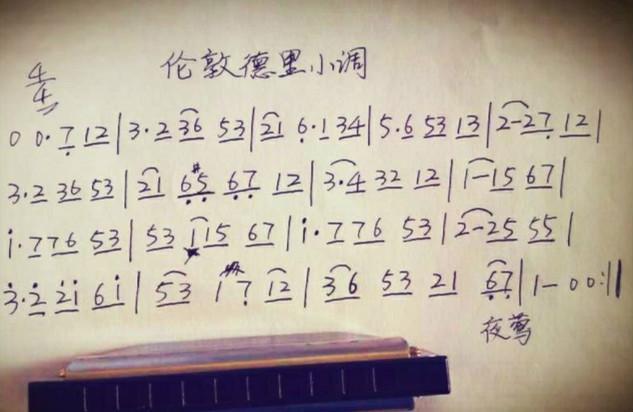 伦敦德里小调
4/4
0 0. 7 12 | 3.2 36 53 | 21 6.1 34 | 5.6 53 13 | 2-27 12 |
3.2 36 53 | 21 6#5 67 12 | 3.4 32 12 | 1-15 67 |
i.776 53 | 53 i15 67 | i.776 53 | 2-25 55 |
3.2 2i 6i | 53 1 7 12 | 36 53 21 67 | 1- 00 :||
夜莺